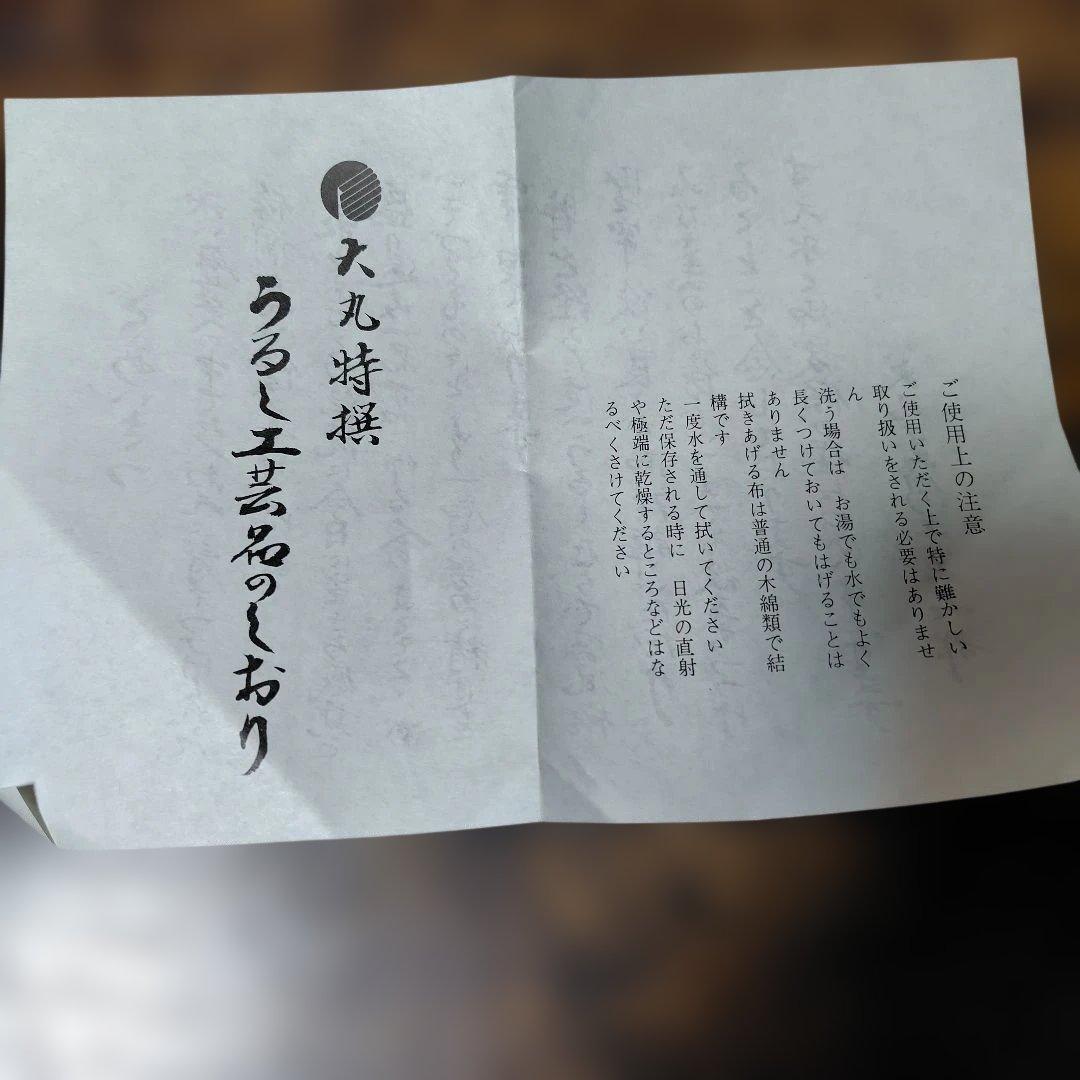 ご使用上の注意
ご使用いただく上で特に難かしい
取り扱いをされる必要はありませ
ん
洗う場合は　お湯でも水でもよく
長くつけておいてもはげることは
ありません
拭きあげる布は普通の木綿類で結
構です
一度水を通して拭いてください
ただ保存される時に　日光の直射
や極端に乾燥するところなどはな
るべくさけてください
大丸特撰
うるし工芸品のしおり